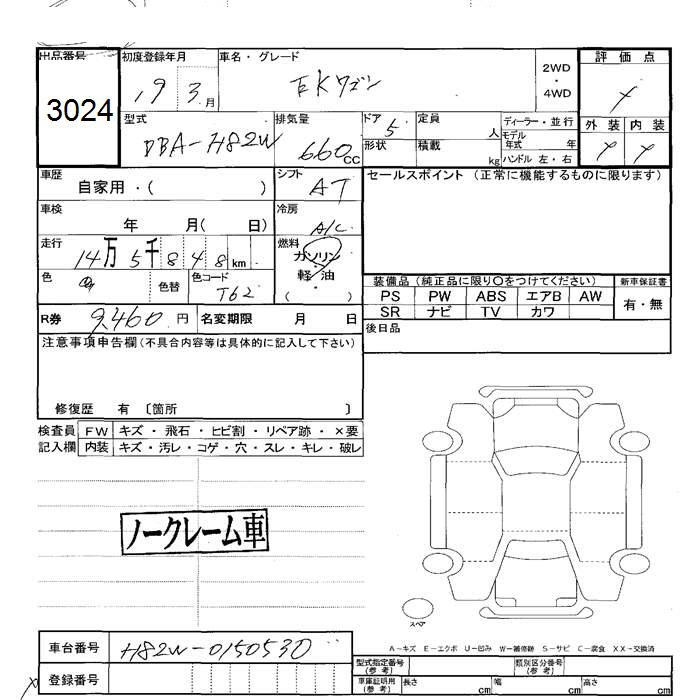 出品番号 初度登録年月 車名・グレード 2WD ・ 4WD 評価点
3024 19 3 月 EKワゴン
型式 排気量 ドア 定員 人 ディーラー・並行 外装 内装
DBA-H82W 660cc 5 モデル年式 年
形状 積載 kg ハンドル 左・右
車歴 シフト セールスポイント(正常に機能するものに限ります)
自家用・( ) AT
車検 冷房
年 月( 日) A/C
走行 燃料
14万5千848km ガソリン
色 色替 色コード 軽油
T62 ( )
装備品(純正品に限り○をつけてください) 新車保証書
PS PW ABS エアB AW 有・無
SR ナビ TV カワ
R券 9,460 円 名変期限 月 日
後日品
注意事項申告欄(不具合内容等は具体的に記入して下さい)
修復歴 有 〔箇所 〕
検査員 FW キズ・飛石・ヒビ割・リペア跡・×要
記入欄 内装 キズ・汚レ・コゲ・穴・スレ・キレ・破レ
ノークレーム車
スペア
A-キズ E-エクボ U-凹み W-補修跡 S-サビ C-腐食 XX-交換済
車台番号 H82W-0150530
型式指定番号(参考) 類別区分番号(参考)
登録番号
車庫証明用(参考) 長さ cm 幅 cm 高さ cm